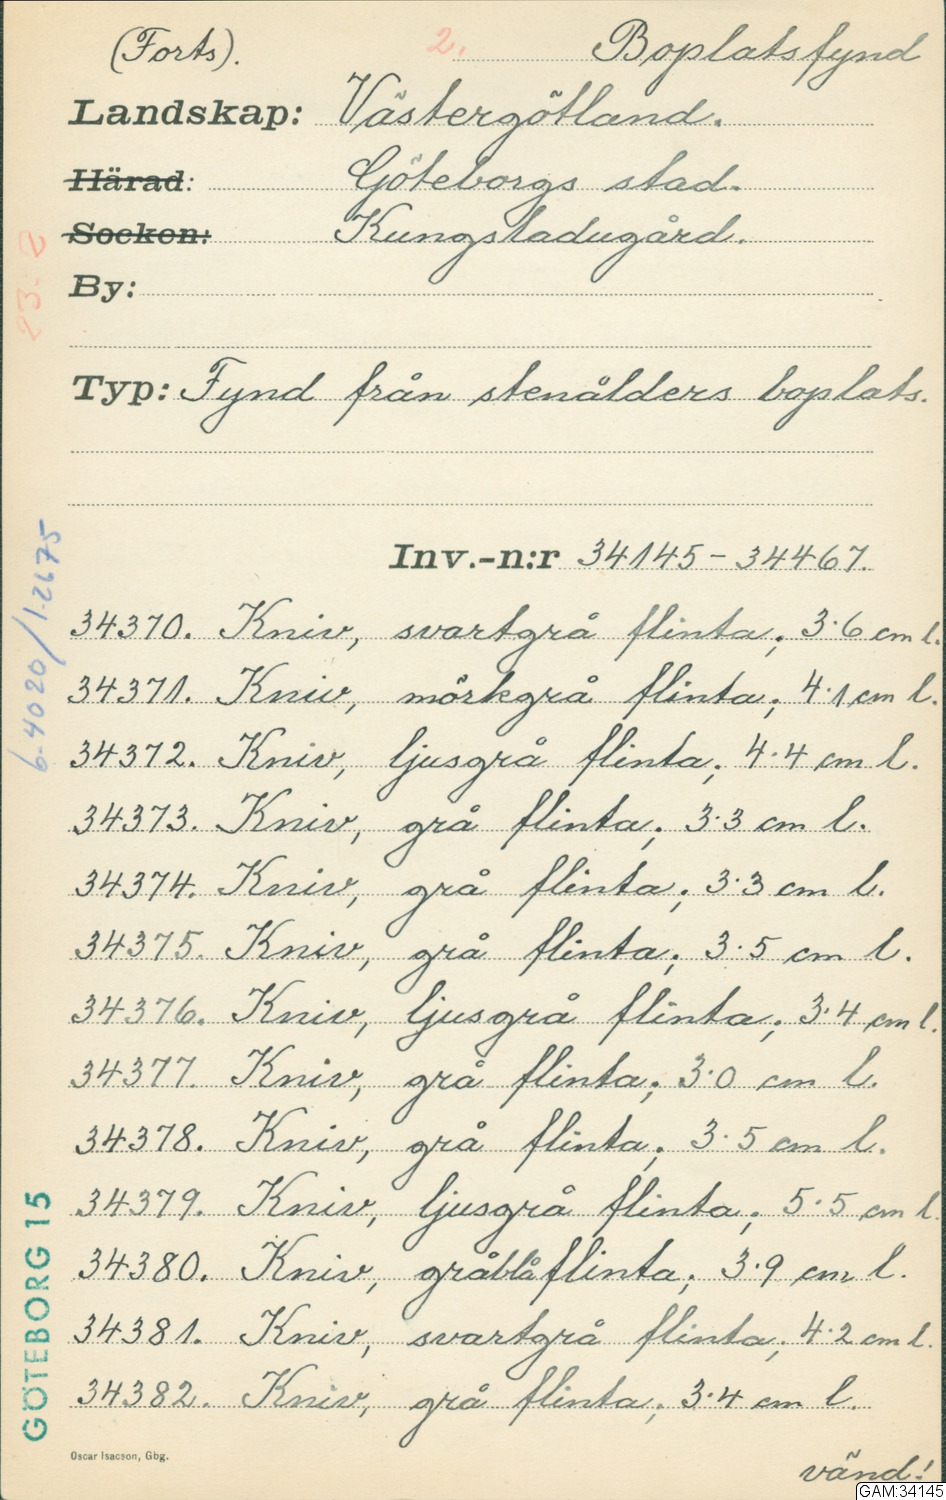 (Forts). 2. Boplatsfynd
Landskap: Västergötland.
Härad: Göteborgs stad.
Socken: Kungsladugård.
By:
Typ: Fynd från stenålders boplats.
Inv.-n:r 34145 - 34467.
34370. Kniv, svartgrå flinta; 3.6 cm l.
34371. Kniv, mörkgrå flinta; 4.1 cm l.
34372. Kniv, ljusgrå flinta; 4.4 cm l.
34373. Kniv, grå flinta; 3.3 cm l.
34374. Kniv, grå flinta; 3.3 cm l.
34375. Kniv, grå flinta; 3.5 cm l.
34376. Kniv, ljusgrå flinta; 3.4 cm l.
34377. Kniv, grå flinta; 3.0 cm l.
34378. Kniv, grå flinta; 3.5 cm l.
34379. Kniv, ljusgrå flinta; 5.5 cm l.
34380. Kniv, gråblå flinta; 3.9 cm l.
34381. Kniv, svartgrå flinta; 4.2 cm l.
34382. Kniv, grå flinta; 3.4 cm l.
Oscar Isacson, Gbg.
vänd!
GAM:34145
23. 2
6-4020/1-2675
GÖTEBORG 15